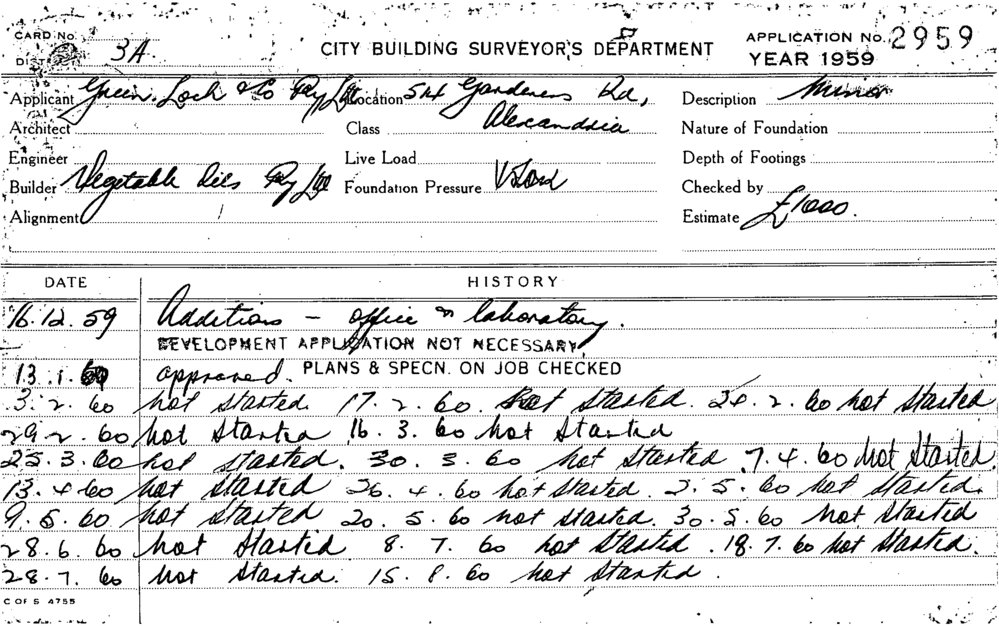 CARD No.
DISTRICT 3A
CITY BUILDING SURVEYOR'S DEPARTMENT
APPLICATION No. 2959
YEAR 1959
Applicant Green, Loch & Co Pty Ltd Location Gardeners Rd, Description Minor
Architect Class Alexandria Nature of Foundation
Engineer Live Load Depth of Footings
Builder Vegetable Oils Pty Ltd Foundation Pressure Checked by
Alignment Estimate £1000.
DATE HISTORY
16.12.59 Additions - office & laboratory.
DEVELOPMENT APPLICATION NOT NECESSARY
13.1.60 approved. PLANS & SPECN. ON JOB CHECKED
3.2.60 not started. 17.2.60. not started. 2.60 not started
29.2.60 not started 16.3.60 not started
23.3.60 not started. 30.3.60 not started 7.4.60 not started.
13.4.60 not started 26.4.60 not started. 2.5.60 not started.
9.5.60 not started 20.5.60 not started. 30.5.60 not started
28.6.60 not started 8.7.60 not started. 18.7.60 not started.
28.7.60 not started. 15.8.60 not started.
C OF S 4755